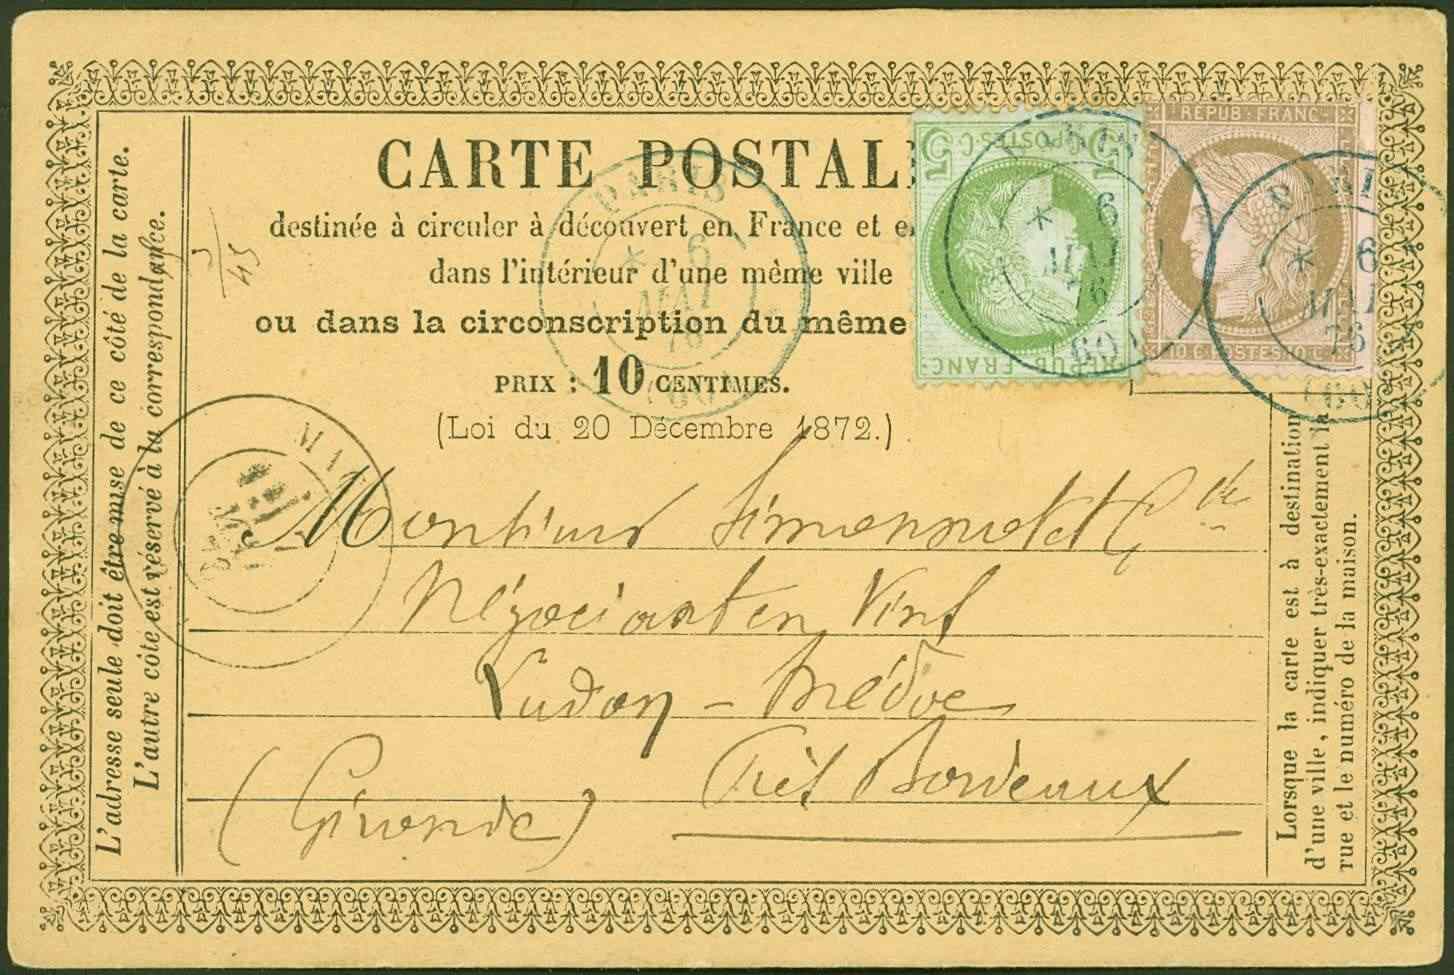 CARTE POSTAL
destinée à circuler à découvert en France et e
dans l'intérieur d'une même ville
ou dans la circonscription du même
PRIX : 10 CENTIMES.
(Loi du 20 Décembre 1872.)
L'adresse seule doit être mise de ce côté de la carte.
L'autre côté est réservé à la correspondance.
5 POSTES 5
REPUB FRANC
REPUB · FRANC
10 C. POSTES 10 C
PARIS
* 6
MAI
76
(60)
PARIS
* 6
MAI
76
(60)
PARIS
* 6
MAI
76
(60)
Monsieur et Cie
Négociant en Vins
Ludon - Médoc
Près Bordeaux
(Gironde)
Lorsque la carte est à destination
d'une ville, indiquer très-exactement la
rue et le numéro de la maison.